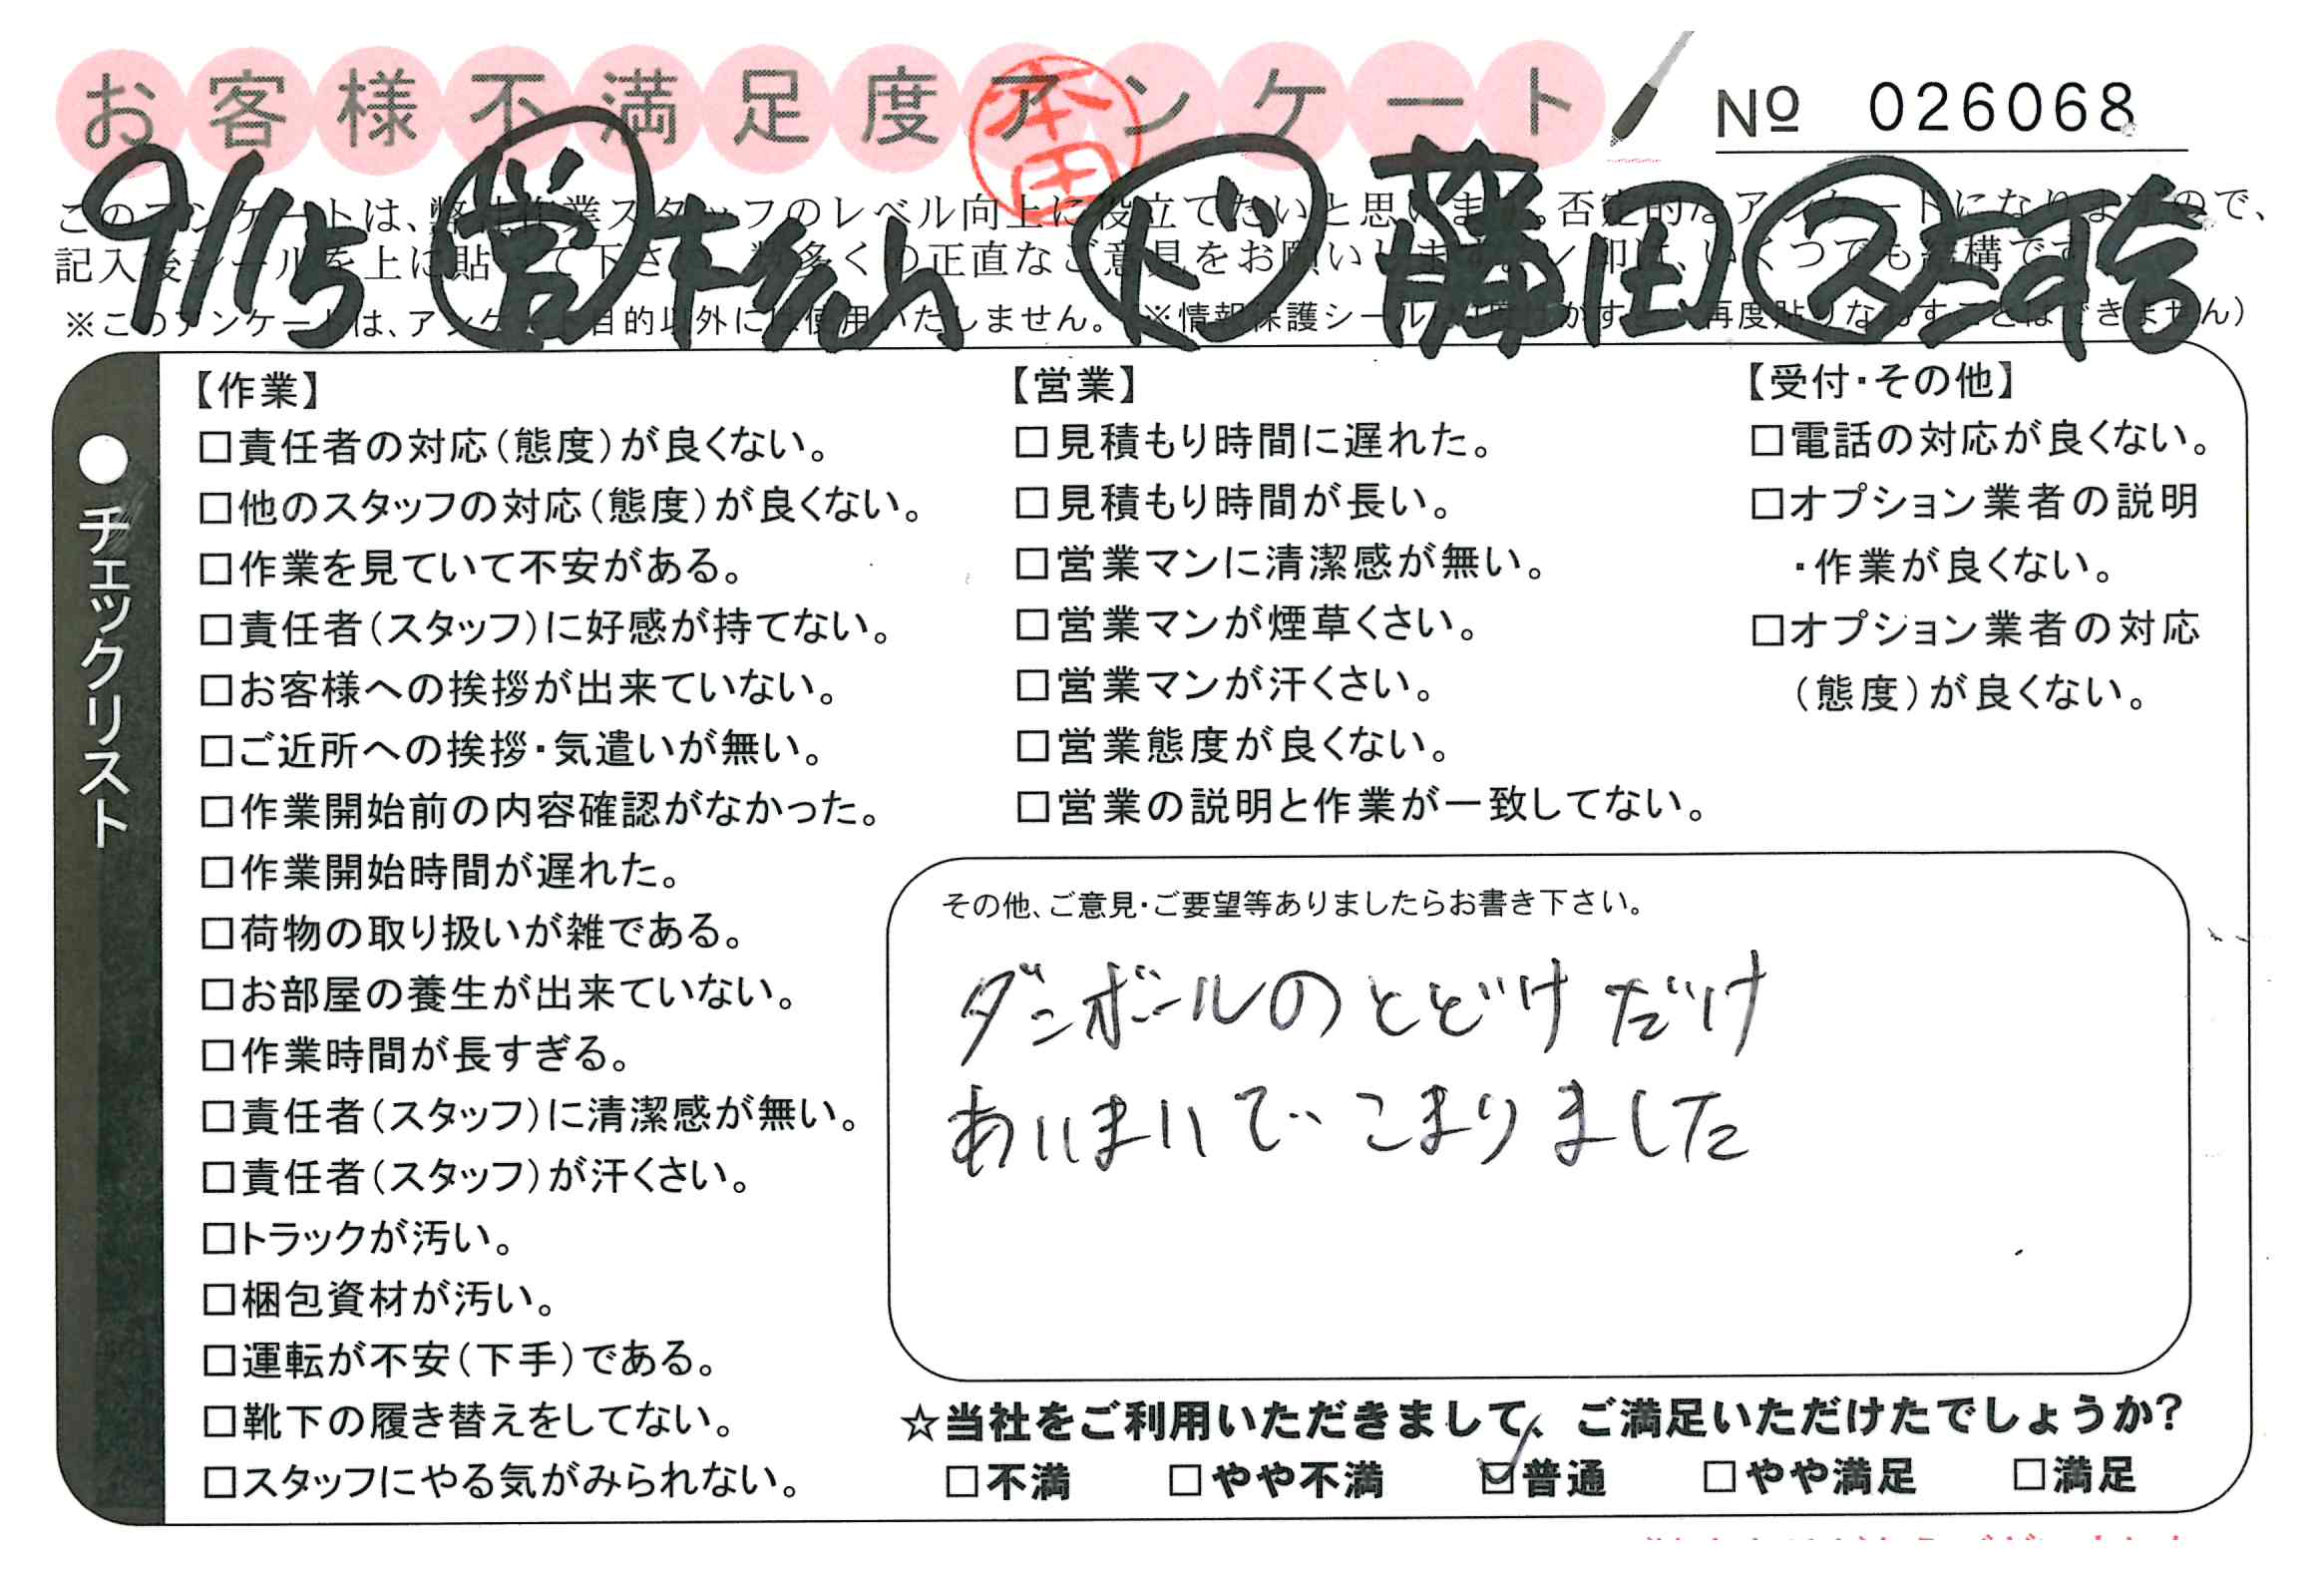 お客様不満足度アンケート
本田
№ 026068
9/15 営 杉山 ド 藤田 ス 三𠮷
このアンケートは、弊社作業スタッフのレベル向上に役立てたいと思います。否定的なアンケートになりますので、
記入後シールを上に貼って下さい。数多くの正直なご意見をお願いします。レ印は、いくつでも結構です。
※このアンケートは、アンケート目的以外には使用いたしません。
●チェックリスト
【作業】
□責任者の対応(態度)が良くない。
□他のスタッフの対応(態度)が良くない。
□作業を見ていて不安がある。
□責任者(スタッフ)に好感が持てない。
□お客様への挨拶が出来ていない。
□ご近所への挨拶・気遣いが無い。
□作業開始前の内容確認がなかった。
□作業開始時間が遅れた。
□荷物の取り扱いが雑である。
□お部屋の養生が出来ていない。
□作業時間が長すぎる。
□責任者(スタッフ)に清潔感が無い。
□責任者(スタッフ)が汗くさい。
□トラックが汚い。
□梱包資材が汚い。
□運転が不安(下手)である。
□靴下の履き替えをしてない。
□スタッフにやる気がみられない。
【営業】
□見積もり時間に遅れた。
□見積もり時間が長い。
□営業マンに清潔感が無い。
□営業マンが煙草くさい。
□営業マンが汗くさい。
□営業態度が良くない。
□営業の説明と作業が一致してない。
【受付・その他】
□電話の対応が良くない。
□オプション業者の説明
・作業が良くない。
□オプション業者の対応
(態度)が良くない。
その他、ご意見・ご要望等ありましたらお書き下さい。
ダンボールのとどけだけ
あいまいで こまりました
☆当社をご利用いただきまして、ご満足いただけたでしょうか?
□不満 □やや不満 ☑普通 □やや満足 □満足